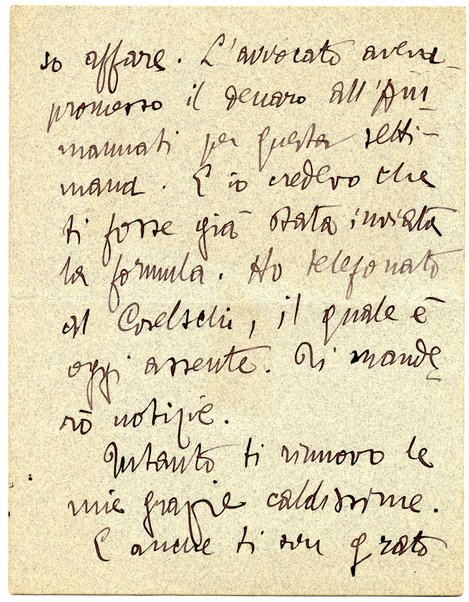 so affare. L'avvocato aveva
promesso il denaro all'Am
mannati per questa setti-
mana. E io credevo che
ti fosse già stata inviata
la formula. Ho telefonato
al Coselschi, il quale è
oggi assente. Ti mande
rò notizie.
Intanto ti rinnovo le
mie grazie caldissime.
E anche ti son grato